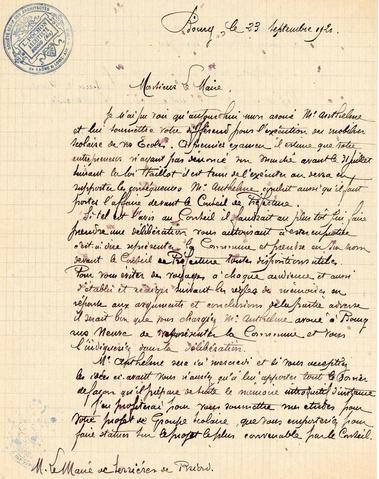 Bourg, le 23 Septembre 1920.
Monsieur le Maire,
Je n'ai pu voir qu'aujourd'hui mon avoué Mr Anthelme
et lui soumettre votre différend pour l'exécution du mobilier
scolaire de vos Ecoles. Au premier examen il estime que votre
entrepreneur n'ayant pas dénoncé son marché avant le 31 juillet
suivant la loi Faillot il est tenu de l'exécuter ou sera en
supporter les conséquences. Mr Anthelme ajoutait aussi qu'il faut
porter l'affaire devant le Conseil de Préfecture.
Si tel est l'avis du Conseil il faudrait au plus tôt lui faire
prendre une délibération vous autorisant d'ester en justice
c'est-à-dire représenter la Commune et prendre en son nom
devant le Conseil de Préfecture toutes dispositions utiles.
Pour vous éviter des voyages à chaque audience et aussi
d'établir et rédiger suivant les règles des mémoires en
réponse aux arguments et conclusions de la partie adverse
il serait bon que vous chargiez Mr Anthelme avoué à Bourg
aux fins de représenter la Commune et vous
l'indiqueriez dans la délibération.
Mr Anthelme sera ici mercredi et si vous acceptez
les idées ci-avant vous n'auriez qu'à lui apporter tout le dossier
de façon qu'il prépare de suite le mémoire introductif d'instance
J'en profiterai pour vous soumettre mes études pour
votre projet de Groupe scolaire que vous emporteriez pour
faire statuer sur le projet le plus convenable par le Conseil.
M. Le Maire de Serrières de Briord.